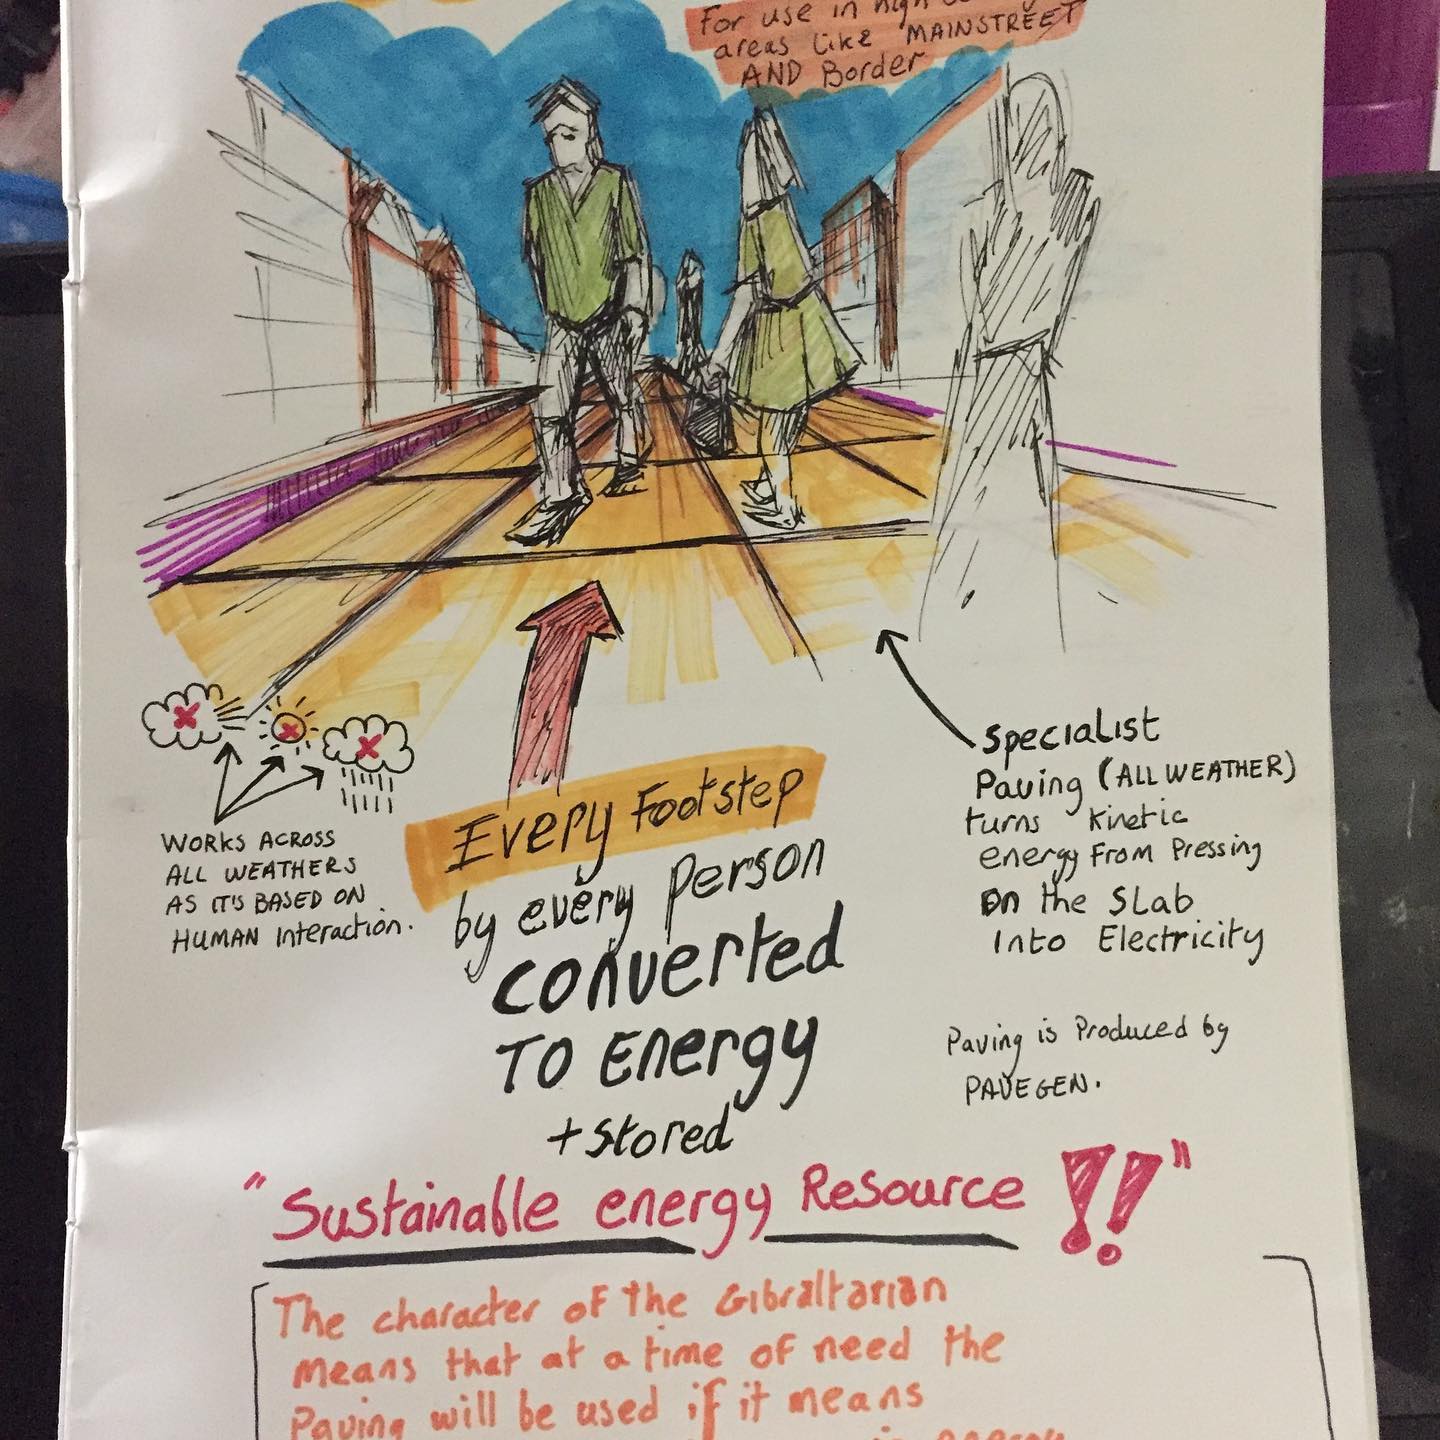 For use in high
areas like MAINSTREET
AND Border
WORKS ACROSS
ALL WEATHERS
AS IT'S BASED ON
HUMAN interaction.
Every Footstep
by every person
converted
TO Energy
+ stored
specialist
Paving (ALL WEATHER)
turns kinetic
energy From Pressing
on the Slab
Into Electricity
Paving is Produced by
PAVEGEN.
"Sustainable energy Resource !!"
The character of the Gibraltarian
means that at a time of need the
Paving will be used if it means
energy